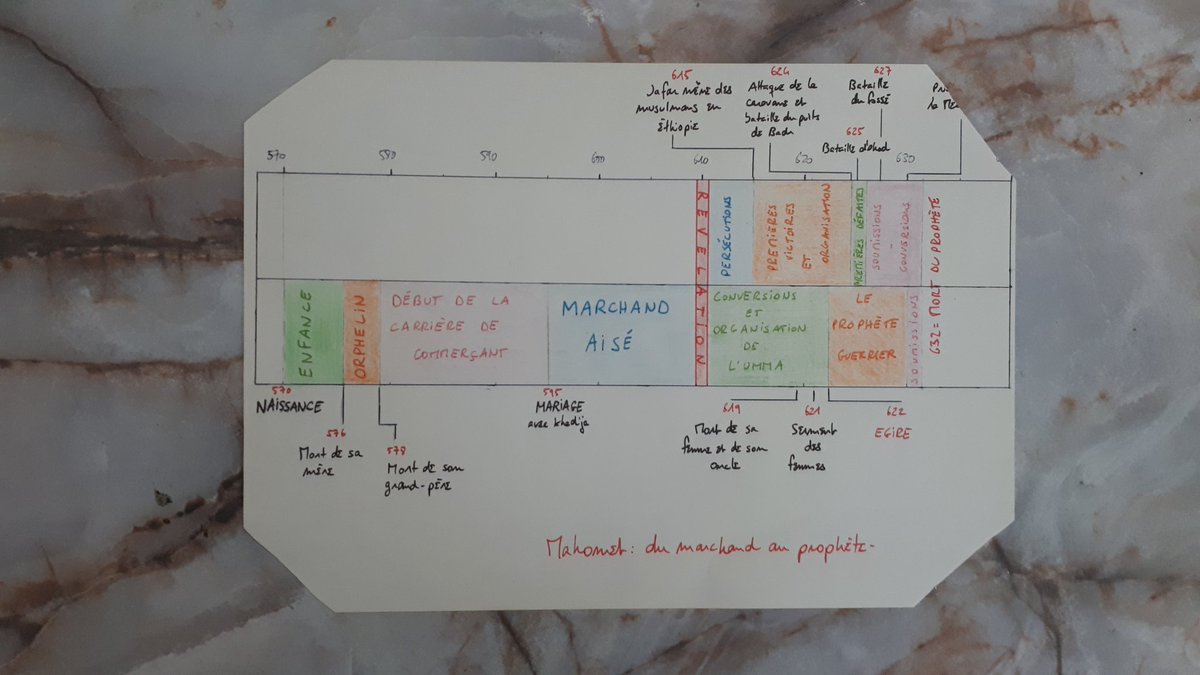 615
Jafar mène des
musulmans en
Éthiopie
624
Attaque de la
caravane et
bataille du puits
de Badr
625
Bataille d'Ohod
627
Bataille
du fossé
la
570
580
590
600
610
620
630
REVELATION
PERSÉCUTIONS
PREMIÈRES
VICTOIRES
ET
ORGANISATION
PREMIÈRES DÉFAITES
SOUMISSIONS
CONVERSIONS
632 = MORT DU PROPHÈTE
ENFANCE
ORPHELIN
DÉBUT DE LA
CARRIÈRE DE
COMMERÇANT
MARCHAND
AISÉ
CONVERSIONS
ET
ORGANISATION
DE
L'UMMA
LE
PROPHÈTE
GUERRIER
SOUMISSIONS
570
NAISSANCE
576
Mort de sa
mère
578
Mort de son
grand-père
595
MARIAGE
avec Khadija
619
Mort de sa
femme et de son
oncle
621
Serment
des
femmes
622
EGIRE
Mahomet : du marchand au prophète.